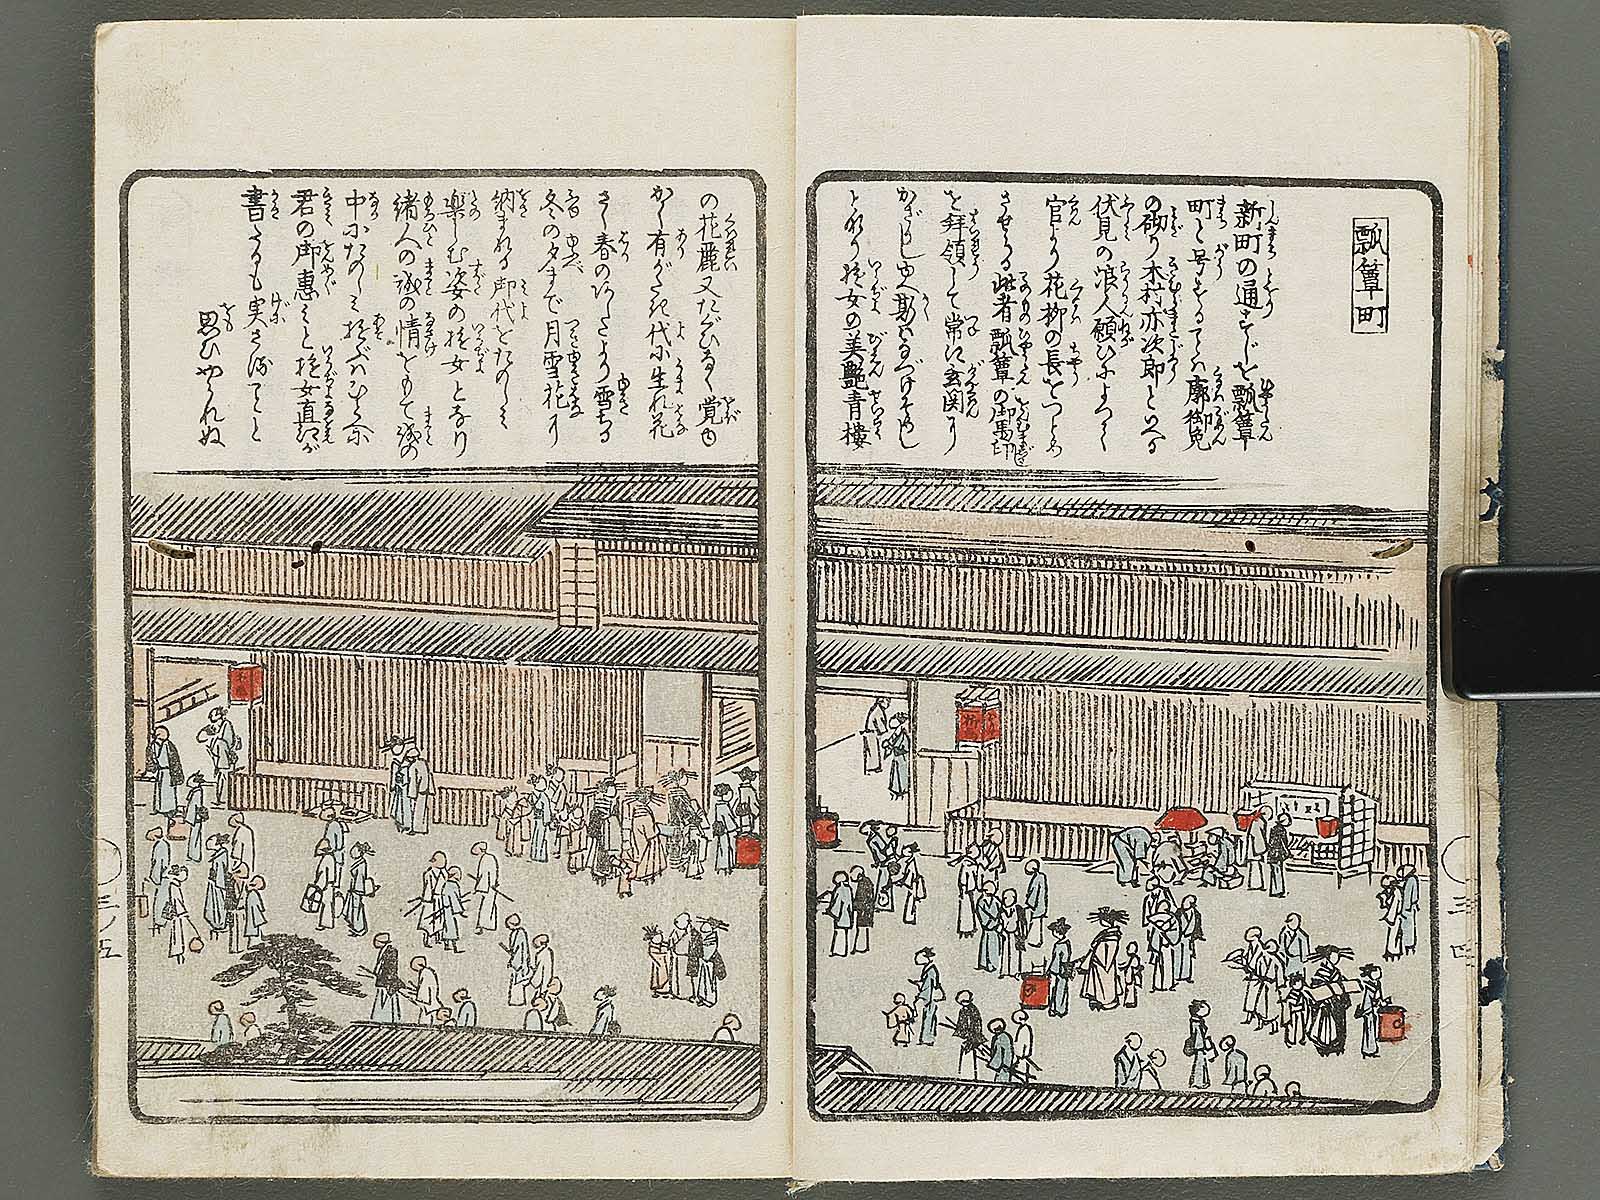 瓢箪町
新町の通すじを瓢箪
町と号することハ廓御免
の砌り木村亦次郎といへる
伏見の浪人願ひによつて
官より花柳の長をつとめ
させらる此者瓢箪の御馬印
を拝領して常に玄関に
かざりし由へ斯ハなづけそめし
となり遊女の美艶青楼
の花麗又たぐひなく覚ゆ
かゝる有がたき代に生れ花
さく春の
より雪ちる
冬の夕まで月雪花に
納まれる御代をたのしミ
楽しむ姿の遊女となり
諸人の誠の情をもて誠の
中にたのしミ遊ぶハむべ
君の御恵ミと遊女直江が
書たるも実さることゝ
思ひやられぬ
三ノ四
三ノ五